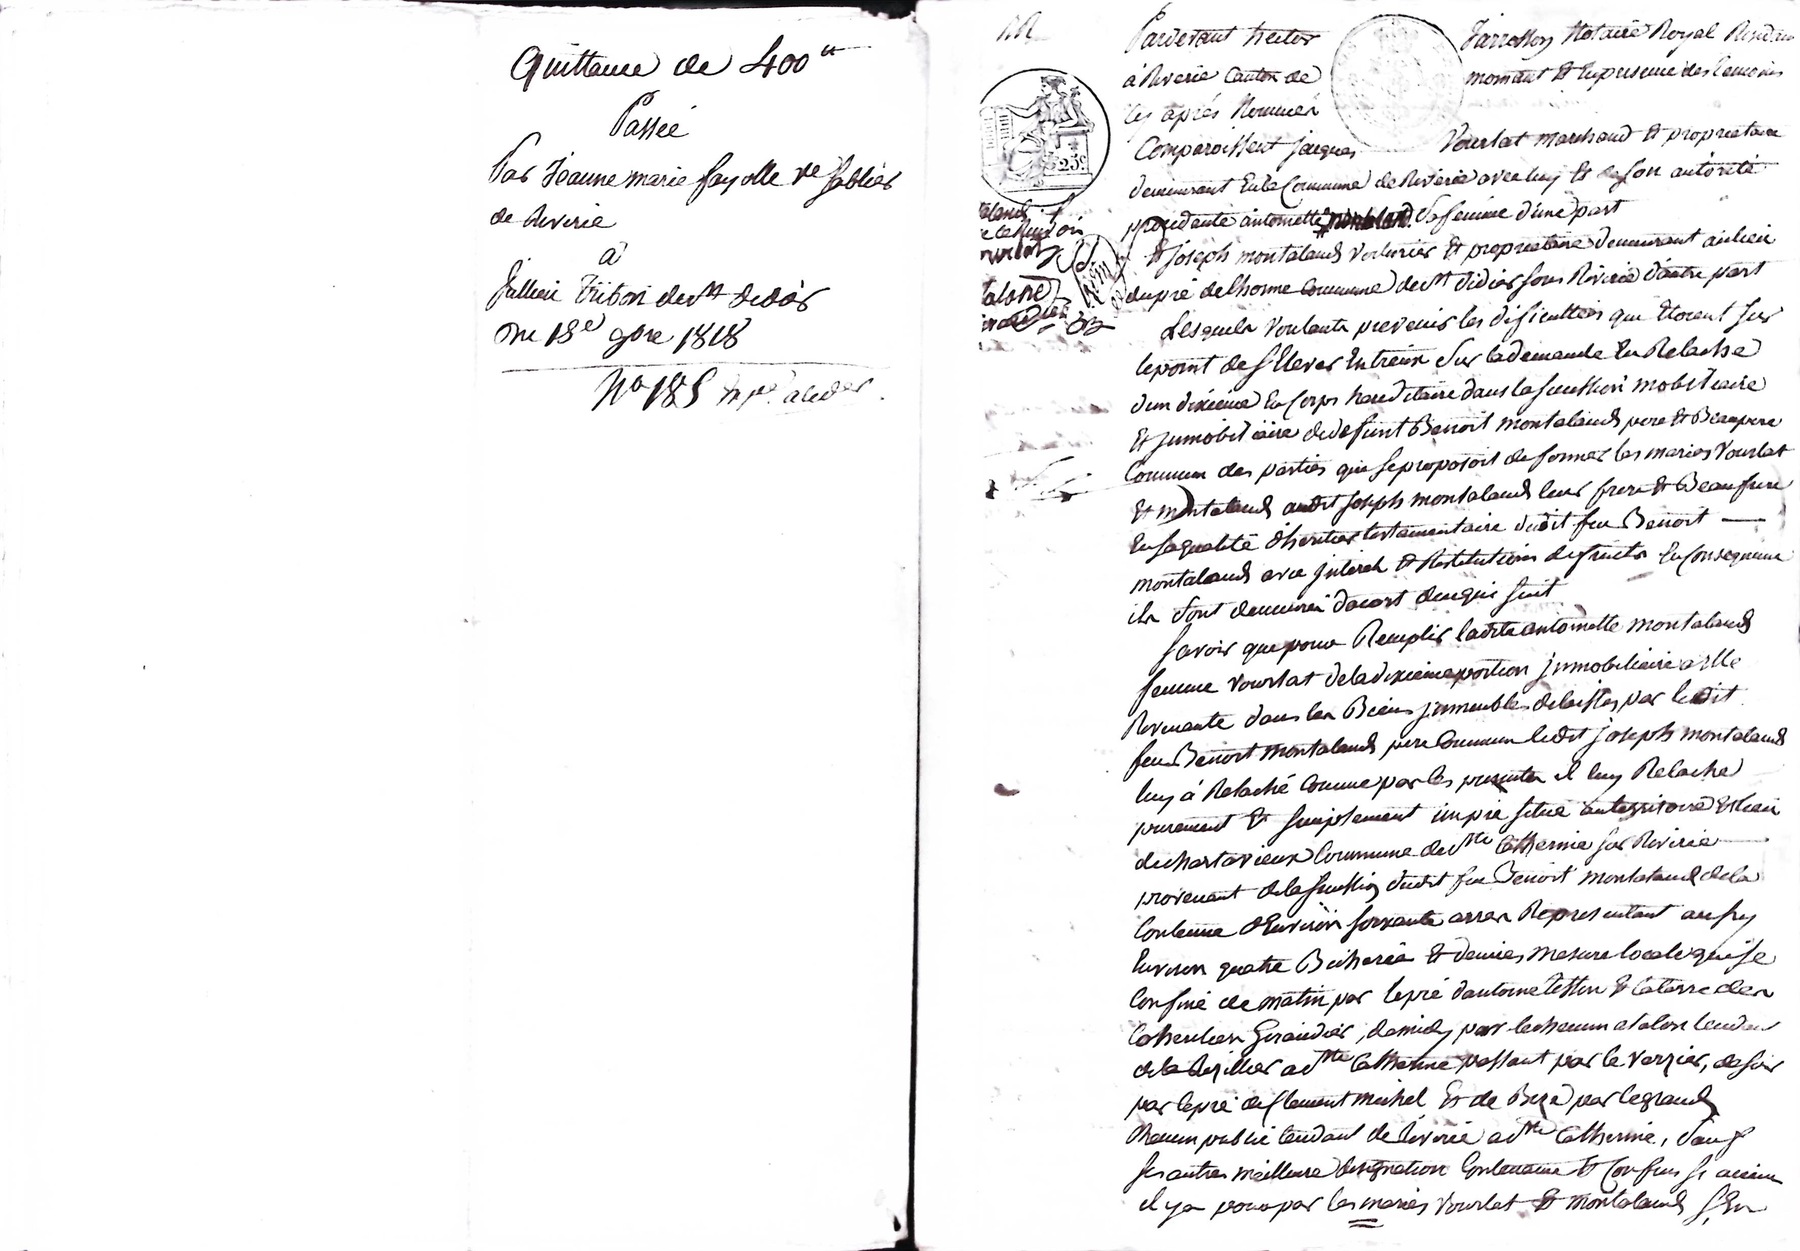 Quittance de 400tt
Passée
Par Jeanne marie fayolle ve Sablier
de Riverie
à
Jullien Tribon de st didier
Du 18e 9bre 1818
No 185
Pardevant hector Jarrosson Notaire Royal Resident
à Riverie Canton de mornant Et En presence des temoins
Cy après Nommés
Comparoissent jacques Vourlat marchand Et proprietaire
demeurant En la Commune de Riverie avec luy Et de son autorité
procedante antoinette sa femme d'une part
Et joseph montaland voiturier Et proprietaire demeurant au lieu
du pré de lhorme Commune de st didier sous Riverie d'autre part
Lesquels voulants prevenir les dificulttés que Etoient sur
le point de s'Elever Entreux sur la demande En Relache
d'un dixieme En Corps hereditaire dans la sucession mobiliaire
Et jmmobiliaire de defunt Benoit montaland pere Et Beaupere
Commun des parties que se proposoit de former les mariés Vourlat
Et montaland audit joseph montaland leur frere Et Beaufrere
En sa qualité d'heritier testamentaire dudit feu Benoit
montaland avec jnterets Et Restitution de fruits En Consequence
ils sont demeurés d'acort de ce qui suit
Savoir que pour Remplir ladite antoinette montaland
femme vourlat de la dixieme portion jmmobiliaire a Elle
Revenante dans les Biens jmmeubles delaissés par ledit
feu Benoit montaland pere Commun ledit joseph montaland
luy à Relaché Comme par les presentes il luy Relache
purement Et simplement un pré situé au territoire Et lieu
de chartavieux Commune de ste Catherine sur Riverie
provenant de la sucession dudit feu Benoit montaland de la
Contenue d'Environ soixante arres Representant
Environ quatre Bicherées Et demies mesure locale qui se
Confine de matin par le pré d'antoine Et la terre des
Giraudier, de midy par le chemin tendant
de a ste Catherine passant par le verzier, de soir
par le pré de Clement michel Et de Bize par le grand
Chemin public tendant de Riverie a ste Catherine, sauf
ses autres meilleure designation Contenance Et Confins si aucun
il y a pour par les mariés vourlat Et montaland s'En